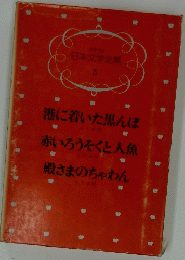 日本文学全集
5
港に着いた黒んぼ
赤いろうそくと人魚
殿さまのちゃわん